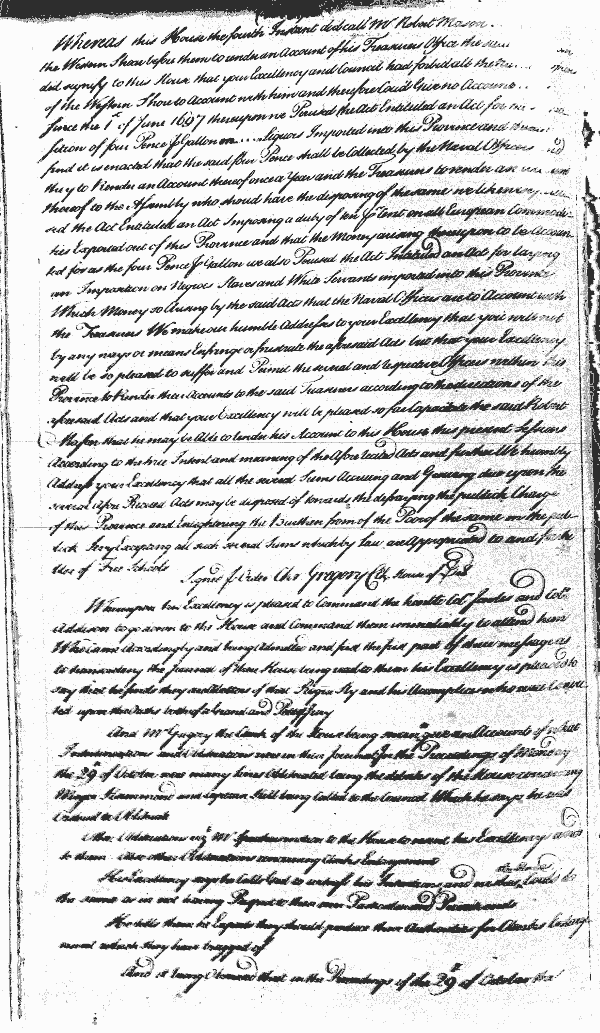 Whereas this House the fourth Instant did call Mr Robert Mason
the Western Shore before them to render an Account of his Treasurers Office the
did signify to this House that your Excellency and Council had forbid all the
of the Western Shore to Account with him and therefore Could Give no Account
Since the 1st of June 1697 thereupon we Perused the Act Entituled an Act for
sition of four Pence P Gallon on Liquors Imported into this Province and
find it is enacted that the said four Pence shall be Collected by the Naval Officers
they to Render an Account thereof once a Year and the Treasurers to render an
thereof to the Assembly who should have the disposing of the same we likewise
sed the Act Entituled an Act Imposing a duty of ten P Cent on all European Commodi
ties Exported out of this Province and that the Money arising thereupon to be Accoun
ted for as the four Pence P Gallon we also Perused the Act Intituled an Act for laying
an Imposition on Negroes Slaves and White Servants imported into this Province
Which Money so arising by the said Acts that the Naval Officers are to Account with
the Treasurers We make our humble Address to your Excellency that you will not
by any ways or means Enfringe or frustrate the aforesaid Acts but that your Excellency
will be so pleased to suffer and Permit the several and respective Officers within this
Province to Render their Accounts to the said Treasurers according to the directions of the
aforesaid Acts and that your Excellency will be pleased so far Capacitate the said Robert
Mason that he may be Able to render his Account to this House this present Sessions
According to the true Intent and meaning of the Afore recited Acts and further We humbly
Address your Excellency that all the several Sums Accruing and Growing due upon the
several afore Recited Acts may be disposed of towards the defraying the publick Charge
of this Province and Enlightening the Burthen from of the Poor of the same in the pub
lick Levy Excepting all such several Sums which by Law are Appropriated to and for the
Use of Free Schools
Signed P Order Chr Gregory Clk House of
Whereupon his Excellency is pleased to Command the honble Col. Jowles and Col.
Addison to go down to the House and Command them immediately to attend him
Who came Accordingly and being Admitted and first the first part of their message as
to transcribing the Journal of their House being read to them his Excellency is pleased to
say that he finds they are Ablotions of that Roger Fly and his Accomplices who were Convic
ted upon the Oaths both of a Grand and Petty Jury
And Mr Gregory the Clerk of the House being to give an Account of what
Interlineations and Obliterations were in their Journal for the Proceedings of Monday
the 29th of October were many lines Obliterated being the debates of the House concerning
Major Hammond and Captain Hill being Called to the Council Which he says he was
Ordered to Obliterate
Other Obliterations viz Mr motion to the House to remit his Excellency
to them Also other Obliterations concerning Clarks Enlargement
His Excellency says he calls God to witness his Intentions and wishes their Lords do
the same as in not having Respect to their own Particular and Private ends
He tells them he Expects they should produce their Authorities for Clarks Enlarge
ment which they have bragged of
And it being Observed that in the Proceedings of the 29th of October the